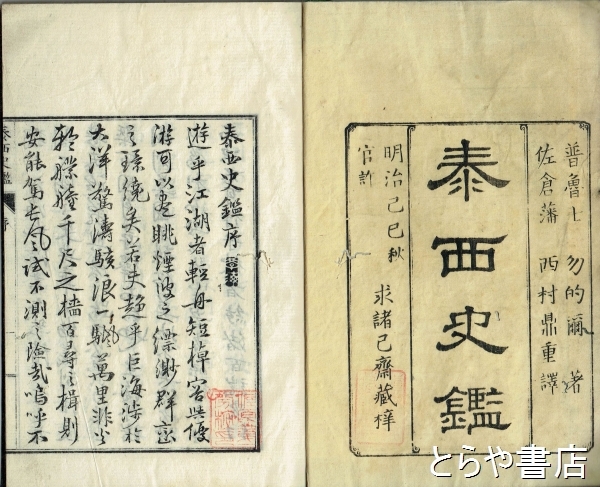 普魯士 勿的爾 著
佐倉藩 西村鼎重譯
泰西史鑑
明治己巳秋 求諸己齋藏梓
官許
泰西史鑑序
遊乎江湖者輕舟短棹容與優
游可以盡眺煙波之縹渺群巒
之環繞矣若夫趨乎巨海涉於
大洋驚濤駭浪一颿萬里非坐
艨艟千尺之檣百尋之楫則
安能駕長風試不測之險哉嗚呼不
泰西史鑑 序
とらや書店